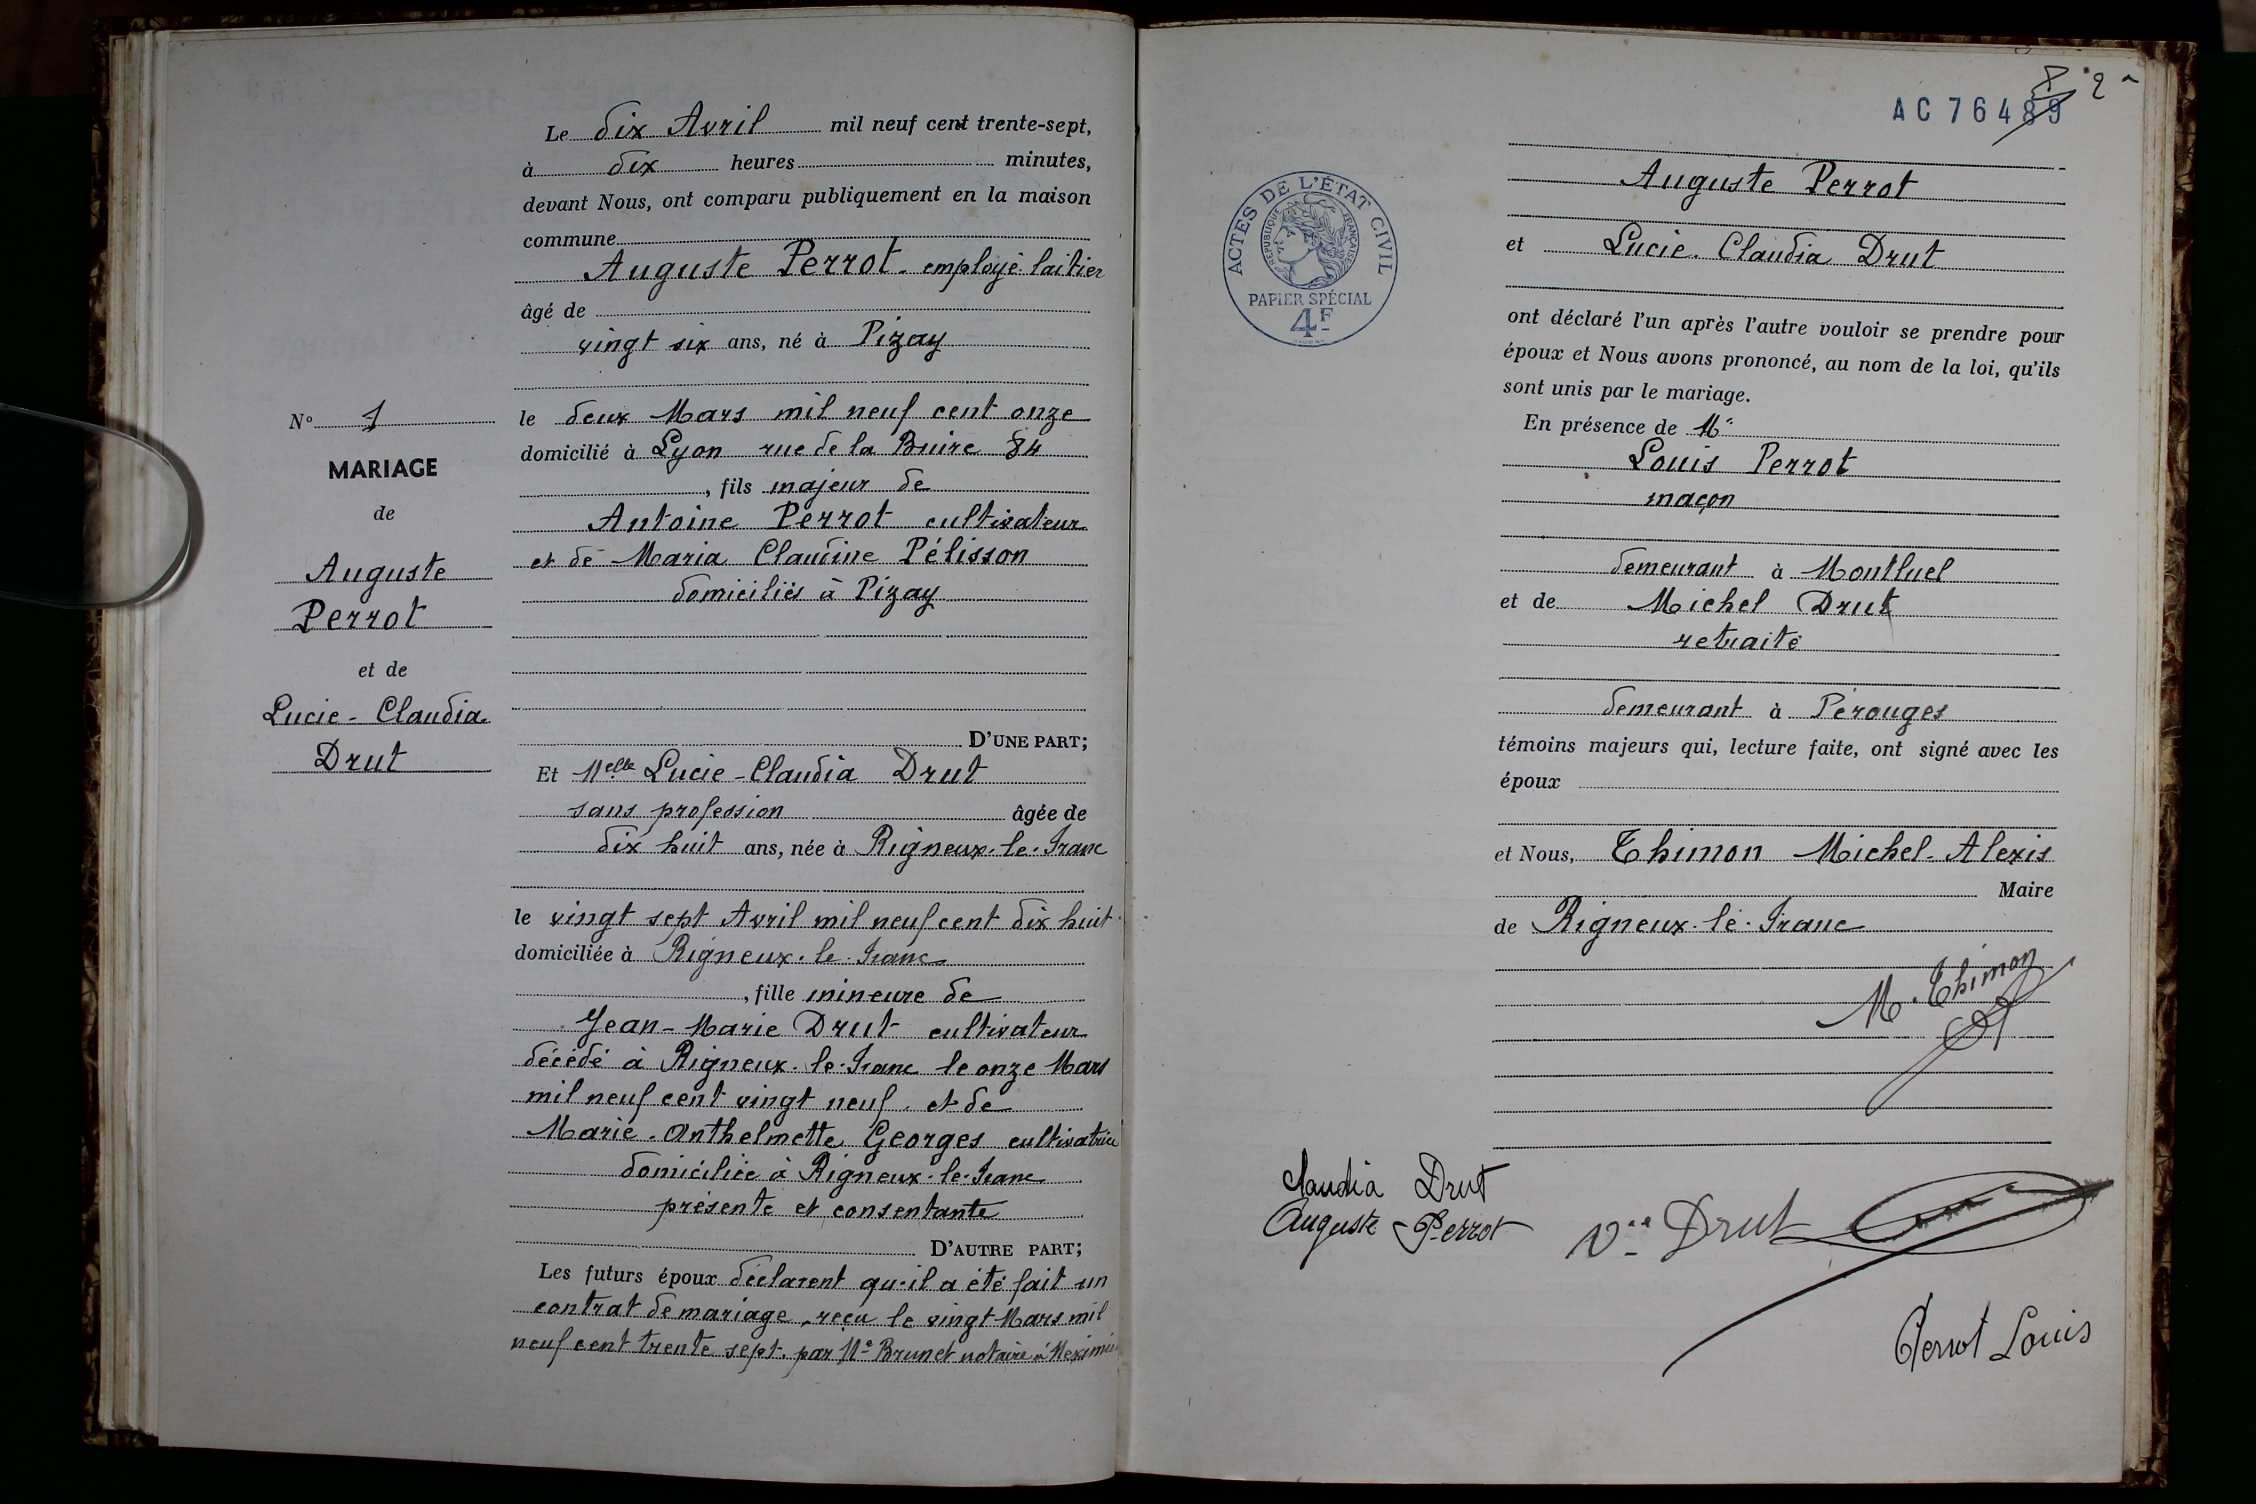 Le dix Avril mil neuf cent trente-sept,
à dix heures minutes,
devant Nous, ont comparu publiquement en la maison
commune
Auguste Perrot employé laitier
âgé de
vingt six ans, né à Pizay
le deux Mars mil neuf cent onze
domicilié à Lyon rue de la Buire 84
, fils majeur de
Antoine Perrot cultivateur
et de Maria Claudine Pélisson
domiciliés à Pizay
D'UNE PART;
N° 1
MARIAGE
de
Auguste
Perrot
et de
Lucie-Claudia
Drut
Et Melle Lucie-Claudia Drut
sans profession âgée de
dix huit ans, née à Rigneux-le-Franc
le vingt sept Avril mil neuf cent dix huit
domiciliée à Rigneux-le-Franc
, fille mineure de
Jean-Marie Drut cultivateur
décédé à Rigneux-le-Franc le onze Mars
mil neuf cent vingt neuf et de
Marie-Anthelmette Georges cultivatrice
domiciliée à Rigneux-le-Franc
présente et consentante
D'AUTRE PART;
Les futurs époux déclarent qu'il a été fait un
contrat de mariage, reçu le vingt Mars mil
neuf cent trente sept. par Me Brunet notaire à Meximie
AC 76489
ACTES DE L'ÉTAT CIVIL
RÉPUBLIQUE FRANÇAISE
PAPIER SPÉCIAL
4F
Auguste Perrot
et Lucie-Claudia Drut
ont déclaré l'un après l'autre vouloir se prendre pour
époux et Nous avons prononcé, au nom de la loi, qu'ils
sont unis par le mariage.
En présence de Mr
Louis Perrot
maçon
demeurant à Montluel
et de Michel Drut
retraité
demeurant à Pérouges
témoins majeurs qui, lecture faite, ont signé avec les
époux
et Nous, Thimon Michel-Alexis
Maire
de Rigneux-le-Franc
M. Thimon
Claudia Drut
Auguste Perrot
Vve Drut
Perrot Louis